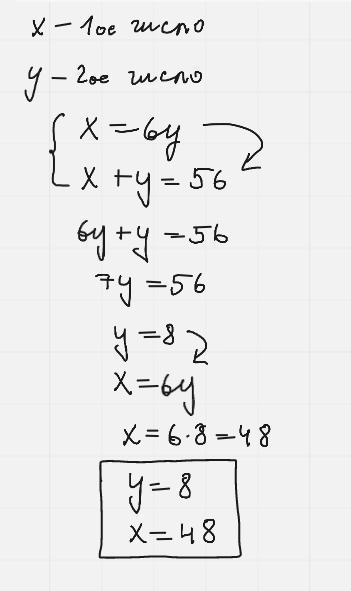 x – 1ое число
y – 2ое число
{ x = 6y
x + y = 56
6y + y = 56
7y = 56
y = 8
x = 6y
x = 6·8 = 48
y = 8
x = 48